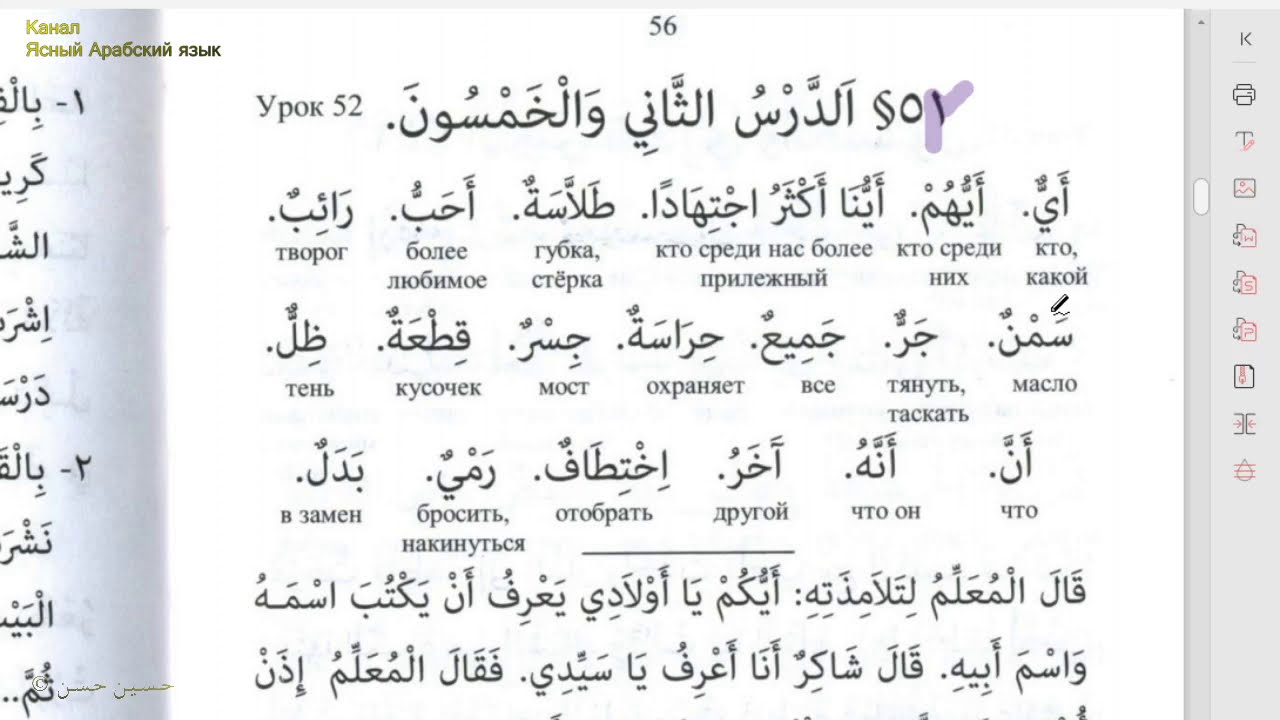 Канал
Ясный Арабский язык
56
§٥٢ اَلدَّرْسُ الثَّانِي وَالْخَمْسُونَ. Урок 52
أَيٌّ. أَيُّهُمْ. أَيُّنَا أَكْثَرُ اجْتِهَادًا. طَلاَّسَةٌ. أَحَبُّ. رَائِبٌ.
творог более губка, кто среди нас более кто среди кто,
любимое стёрка прилежный них какой
سَمْنٌ. جَرٌّ. جَمِيعٌ. حِرَاسَةٌ. جِسْرٌ. قِطْعَةٌ. ظِلٌّ.
тень кусочек мост охраняет все тянуть, масло
таскать
أَنَّ. أَنَّهُ. آخَرُ. اِخْتِطَافٌ. رَمْيٌ. بَدَلٌ.
в замен бросить, отобрать другой что он что
накинуться
قَالَ الْمُعَلِّمُ لِتَلاَمِذَتِهِ: أَيُّكُمْ يَا أَوْلاَدِي يَعْرِفُ أَنْ يَكْتُبَ اسْمَـهُ
وَاسْمَ أَبِيهِ. قَالَ شَاكِرٌ أَنَا أَعْرِفُ يَا سَيِّدِي. فَقَالَ الْمُعَلِّمُ إِذَنْ
١-
٢-
الْبَيْ
ثُمَّ..
© حسين حسن